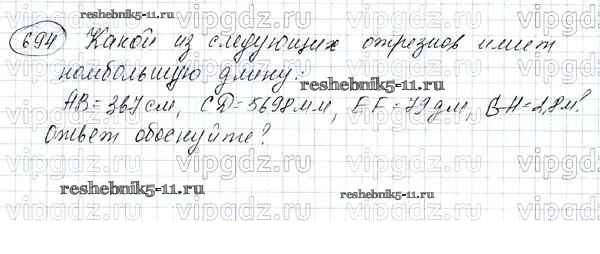 reshebnik5-11.ru
694 Какой из следующих отрезков имеет
наибольшую длину:
reshebnik5-11.ru
AB = 367 см, CD = 5698 мм, EF = 79 дм, GH = 2,8 м?
Ответ обоснуйте?
reshebnik5-11.ru reshebnik5-11.ru
vipgdz.ru vipgdz.ru vipgdz.ru vipgdz.ru